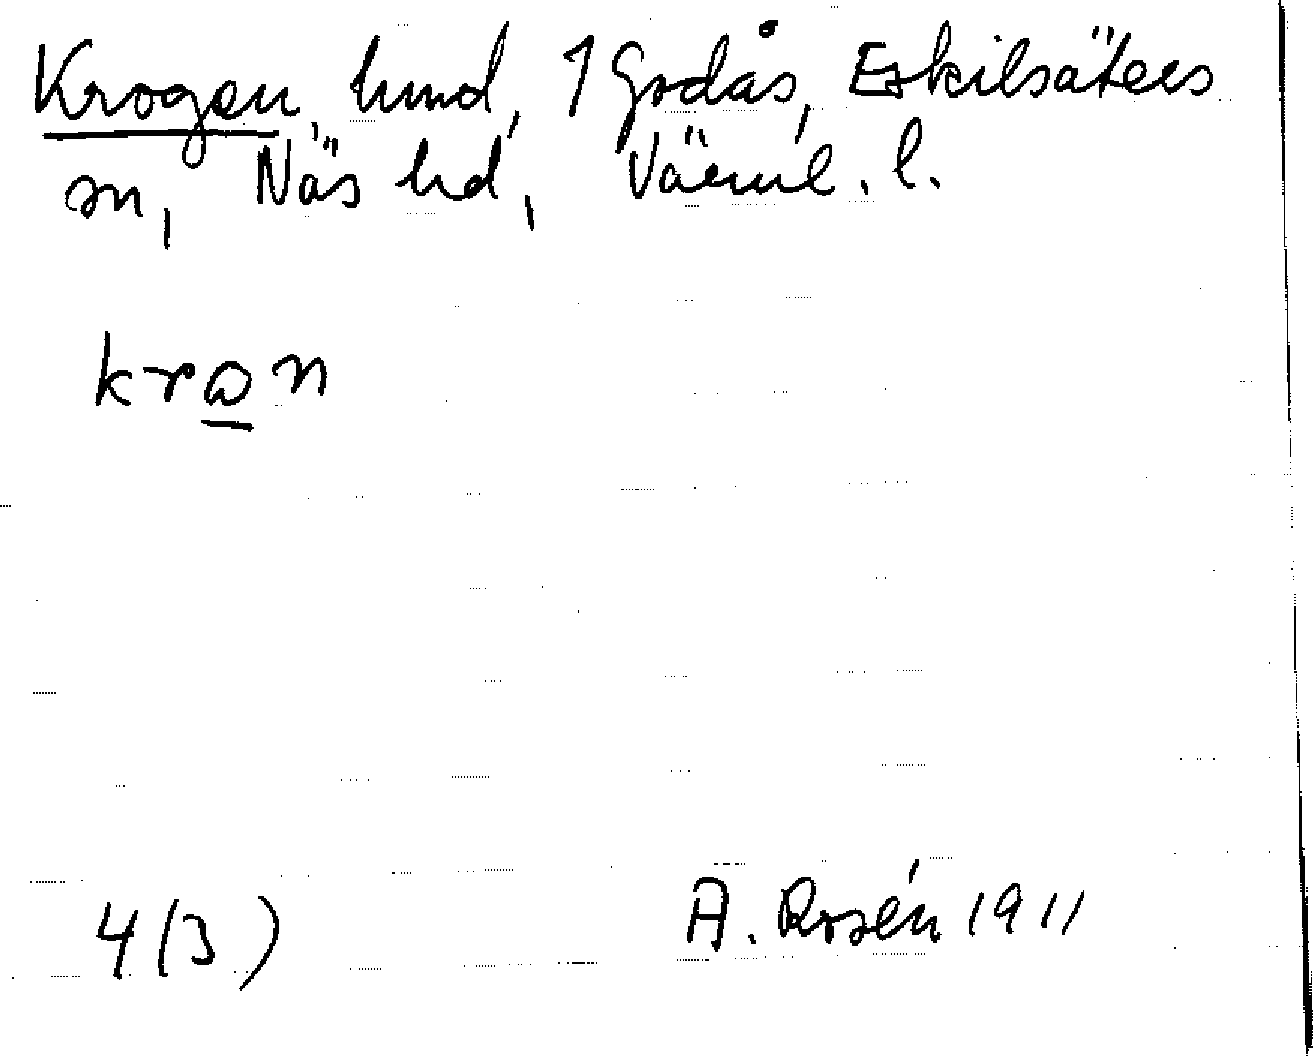 Krogen, hmd, 1 Godås, Eskilsäters
sn, Näs hd, Värml. l.
kran
4(3) A. Rosén 1911